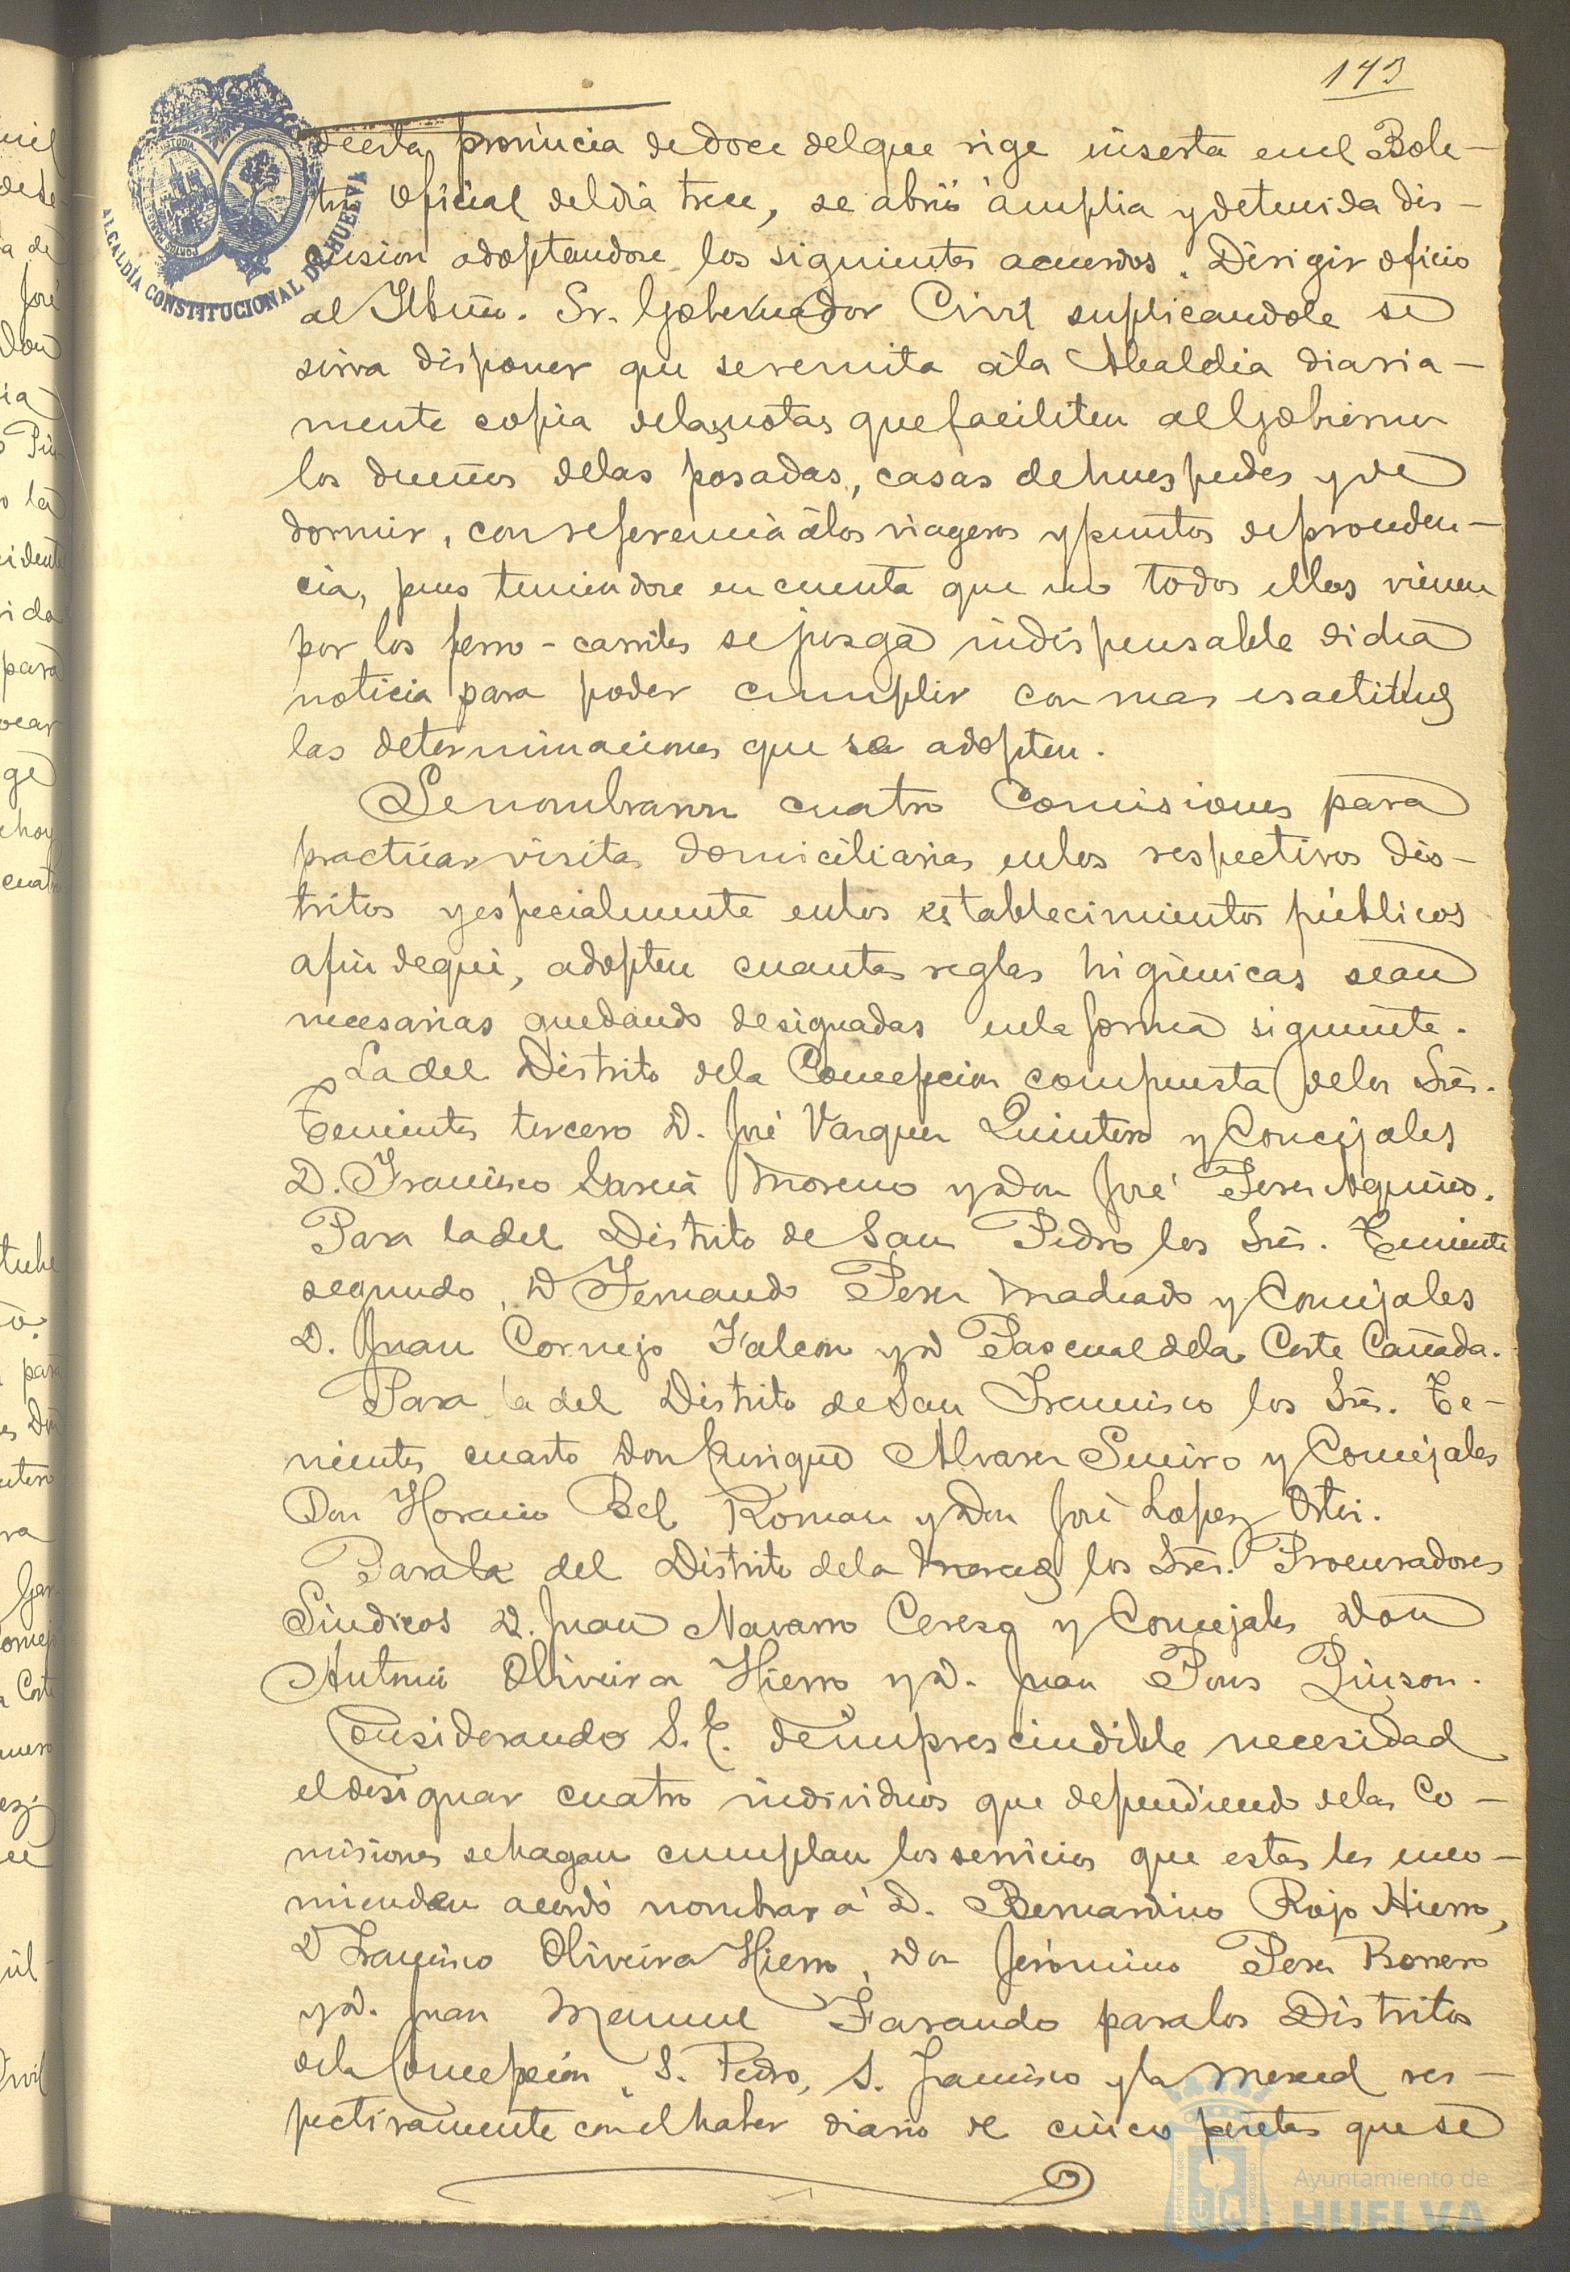 143
de esta provincia de doce del que rige inserta en el Bole-
tin Oficial del dia trece, se abrió ámplia y detenida dis-
cusion adoptandose los siguientes acuerdos. Dirigir oficio
al Iltmo. Sr. Gobernador Civil suplicandole se
sirva disponer que se remita á la Alcaldia diaria-
mente copia de las notas que faciliten al Gobierno
los dueños de las posadas, casas de huespedes y de
dormir, con referencia á los viageros y puntos de proceden-
cia, pues teniendose en cuenta que no todos ellos vienen
por los ferro-carriles se juzga indispensable dicha
noticia para poder cumplir con mas esactitud
las determinaciones que se adopten.
Se nombraron cuatro Comisiones para
practicar visitas domiciliarias en los respectivos dis-
tritos y especialmente en los establecimientos públicos
a fin de que, adopten cuantas reglas higiénicas sean
necesarias quedando designadas en la forma siguiente.
La del Distrito de la Concepcion compuesta de los Sres.
Teniente tercero D. José Vazquez Quintero y Concejales
D. Francisco Garcia Moreno y Don José Perez Aquino.
Para la del Distrito de San Pedro los Sres. Teniente
segundo, D Fernando Perez Machado y Concejales
D. Juan Cornejo Falcon y D Pascual de la Corte Cañada.
Para la del Distrito de San Francisco los Sres. Te-
niente cuarto Don Enrique Alvarez Sineiro y Concejales
Don Horacio Bel Roman y Don José Lopez Ortiz.
Para la del Distrito de la Merced los Sres. Procuradores
Sindicos D. Juan Navarro Cerezo y Concejales Don
Antonio Oliveira Hierro y D. Juan Pons Pinson.
Considerando S. E. de imprescindible necesidad
el designar cuatro individuos que dependiendo de las Co-
misiones se hagan cumplan los servicios que estas les enco-
mienden acordó nombrar á D. Bernardino Rojo Hierro,
D Francisco Oliveira Hierro, Don Jerónimo Perez Borrero
y D. Juan Manuel Farando para los Distritos
de la Concepción, S. Pedro, S. Francisco y la Merced res-
pectivamente con el haber diario de cinco pesetas que se
ALCALDÍA CONSTITUCIONAL DE HUELVA
Ayuntamiento de
HUELVA